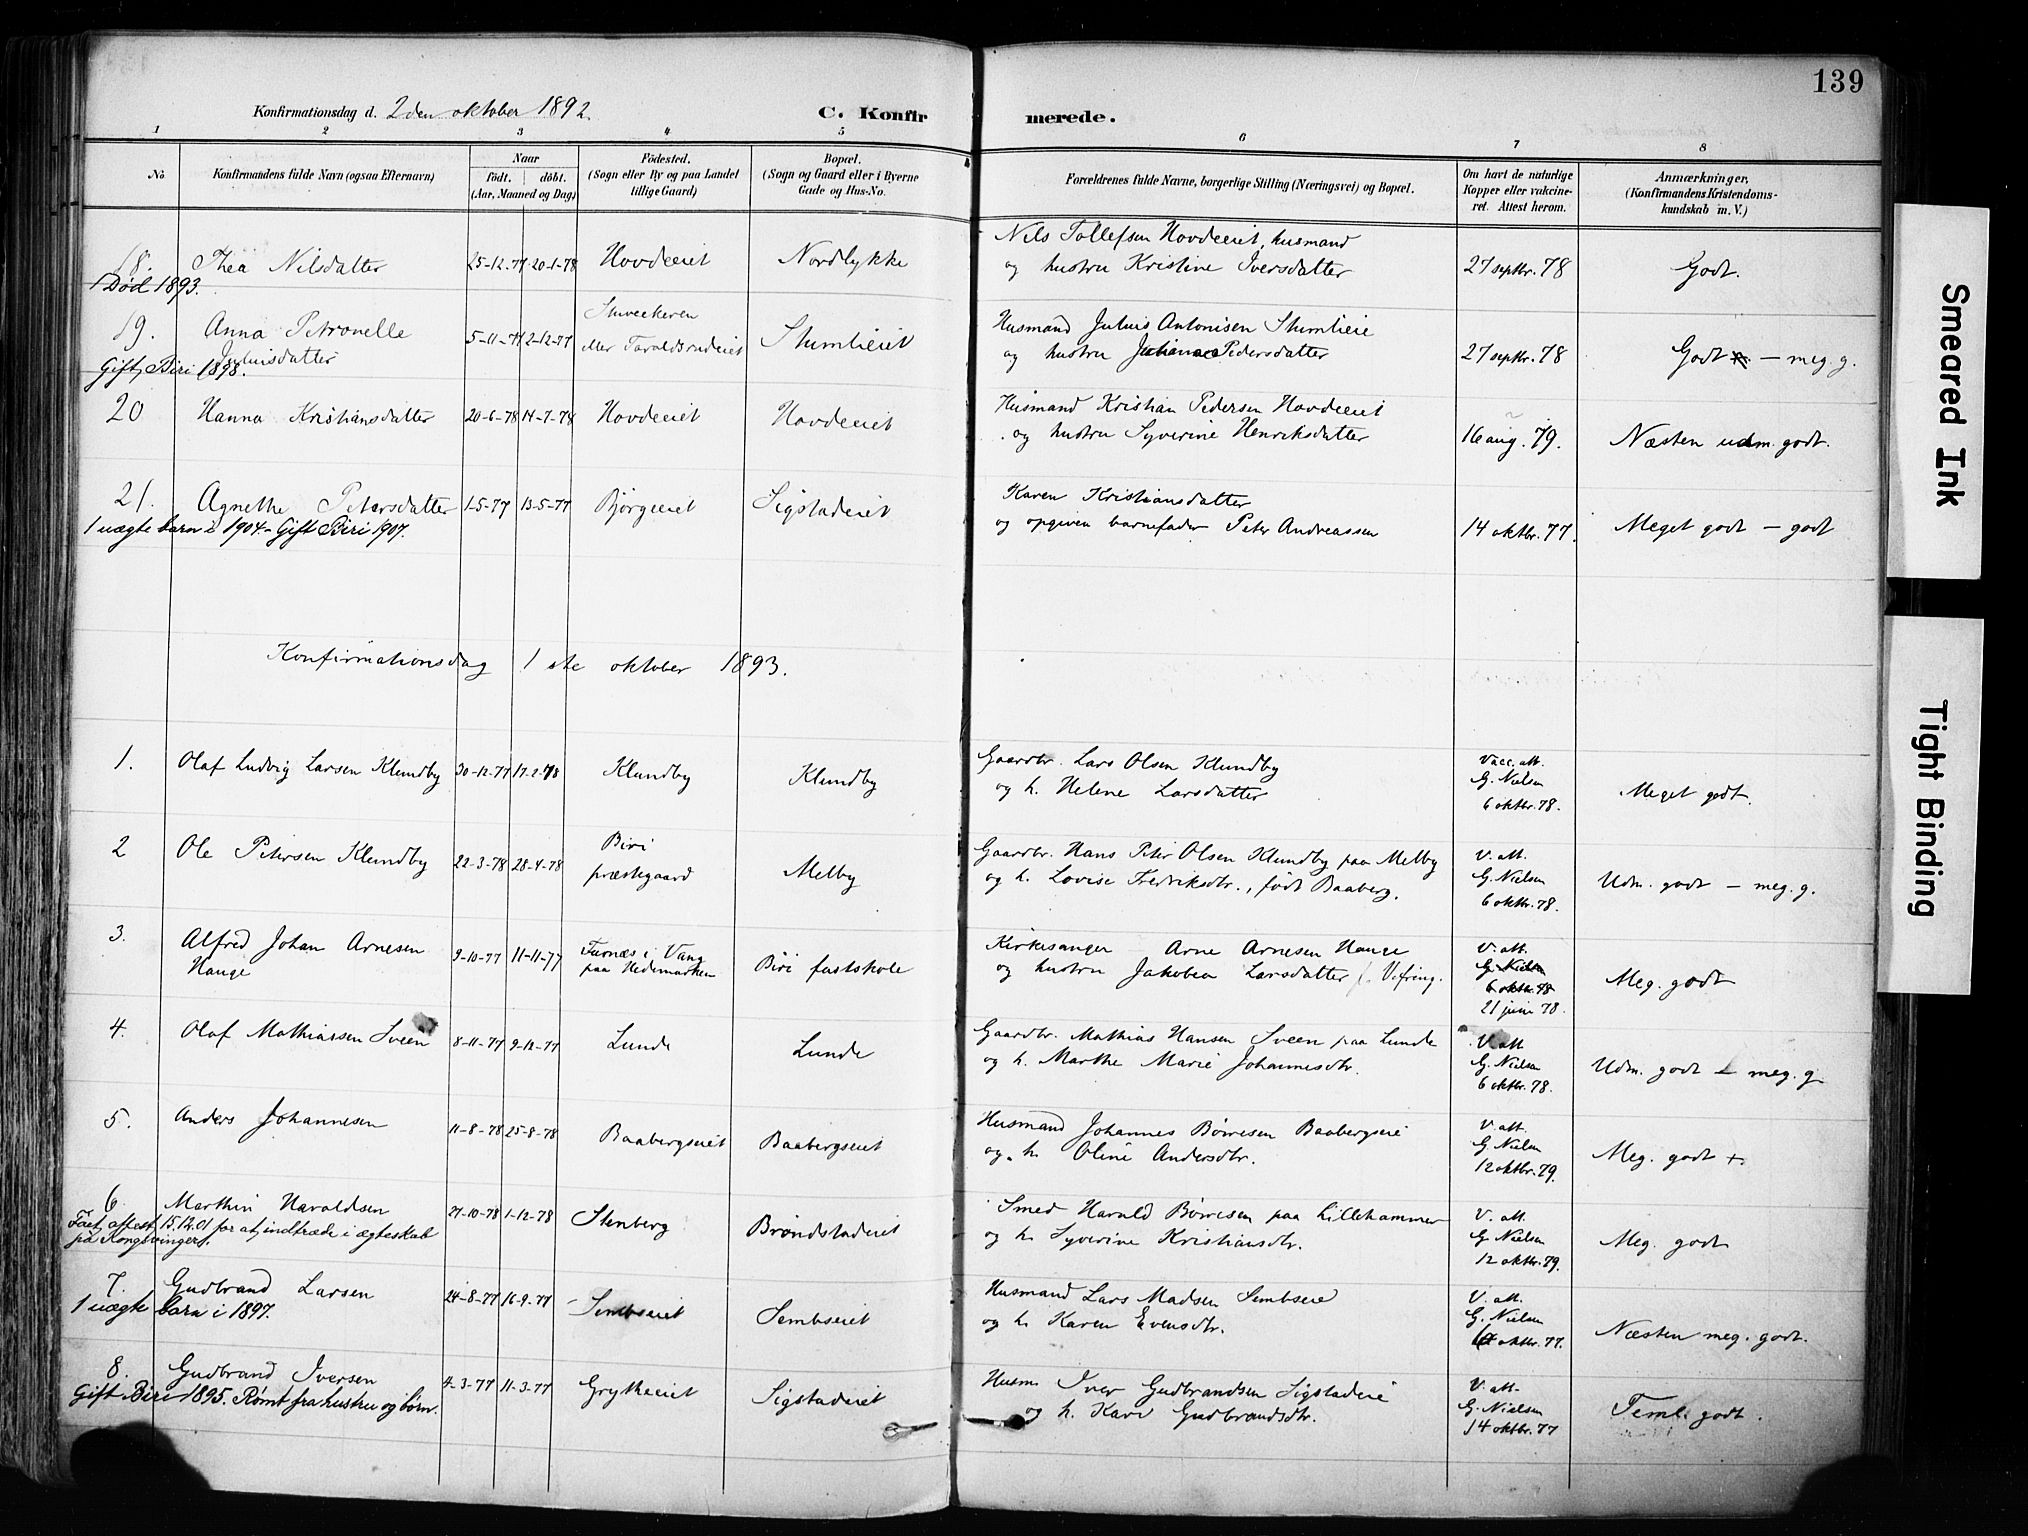 139
Konfirmationsdag d. 2den oktober 1892.
C. Konfirmerede.
1 2 3 4 5 6 7 8
No.
Konfirmandens fulde Navn (ogsaa Efternavn)
Naar
født. døbt.
(Aar, Maaned og Dag)
Fødested.
(Sogn eller By og paa Landet
tillige Gaard)
Bopæl.
(Sogn og Gaard eller i Byerne
Gade og Hus-No.
Forældrenes fulde Navne, borgerlige Stilling (Næringsvei) og Bopæl.
Om havt de naturlige
Kopper eller vakcine-
ret. Attest herom.
Anmærkninger,
(Konfirmandens Kristendoms-
kundskab m. V.)
18. Thea Nilsdatter 25-12-77 20-1-78 Hovdeeiet Nordlykke
Nils Tollefsen Hovdeeiet, husmand
og hustru Kristine Iversdatter 27 septbr. 78 Godt.
Død 1893.
19. Anna Petronelle
Juliusdatter 5-11-77 2-12-77
eller Taraldsrudeiet Stumlieiet
Husmand Julius Antonisen Stumlieie
og hustru Juliane Pedersdatter 27 septbr. 78 Godt — meg. g.
Gift, Biri 1898.
20 Hanna Kristiansdatter 20-6-78 14-7-78 Hovdeeiet Hovdeeiet
Husmand Kristian Pedersen Hovdeeiet
og hustru Syverine Henriksdatter 16 aug. 79. Næsten udm. godt.
21. Agnethe Petersdatter 1-5-77 13-5-77 Bjørgeeiet Sigstadeiet
Karen Kristiansdatter
og opgiven barnefader Peter Andreassen 14 oktbr. 77. Meget godt — godt
1 uægte barn i 1904 - Gift Biri 1907.
Konfirmationsdag 1ste oktober 1893.
1. Olaf Ludvig Larsen Klundby 30-12-77 17-2-78 Klundby Klundby
Gaardbr. Lars Olsen Klundby
og h. Helene Larsdatter
Vacc. att.
G. Nielsen
6 oktbr. 78.
Meget godt.
2 Ole Petersen Klundby 22-3-78 28-4-78 Biri
præstegaard Melby
Gaardbr. Hans Peter Olsen Klundby paa Melby
og h. Lovise Fredriksdtr., født Baaberg.
V. att.
G. Nielsen
6 oktbr. 78.
Udm. godt — meg. g.
3. Alfred Johan Arnesen
Hauge 9-10-77 11-11-77 Furnæs i Vang
paa Hedemarken Biri fastskole
Kirkesanger Arne Arnesen Hauge
og hustru Jakobea Larsdatter f. Vefring.
V. att.
G. Nielsen
6 oktbr. 78
21 juni 78.
Meg. godt
4. Olaf Mathiassen Sveen 8-11-77 9-12-77 Lunde Lunde
Gaardbr. Mathias Hansen Sveen paa Lunde
og h. Marthe Marie Johannesdtr.
V. att.
G. Nielsen
6 oktbr. 78.
Udm. godt — meg. g
5. Anders Johannesen 11-8-78 25-8-78 Baabergseiet Baabergseiet
Husmand Johannes Børresen Baabergseie
og h. Oline Andersdtr.
V. att.
G. Nielsen
12 oktbr. 79.
Meg. godt +.
6 Marthin Haraldsen 27-10-78 1-12-78 Stenberg Brøndstadeiet
Smed Harald Børresen paa Lillehammer
og h. Syverine Kristiansdtr.
V. att.
G. Nielsen
12 oktbr. 79.
Meg. godt
Faaet attest 15.12.01 for at indtræde i ægteskab
på Kongsvinger.
7. Gudbrand Larsen 24-8-77 16-9-77 Sembseiet Sembseiet
Husmand Lars Madsen Sembseie
og h. Karen Evensdtr.
V. att.
G. Nielsen
oktbr. 77.
Næsten meg. godt.
1 uægte barn i 1897.
8. Gudbrand Iversen 4-3-77 11-3-77 Grytheeiet Sigstadeiet
Husm. Iver Gudbrandsen Sigstadeie
og h. Kari Gudbrandsdtr.
V. att.
G. Nielsen
14 oktbr. 77
Teml. godt.
Gift Biri 1895. Rømt fra hustru og børn.
Smeared Ink
Tight Binding